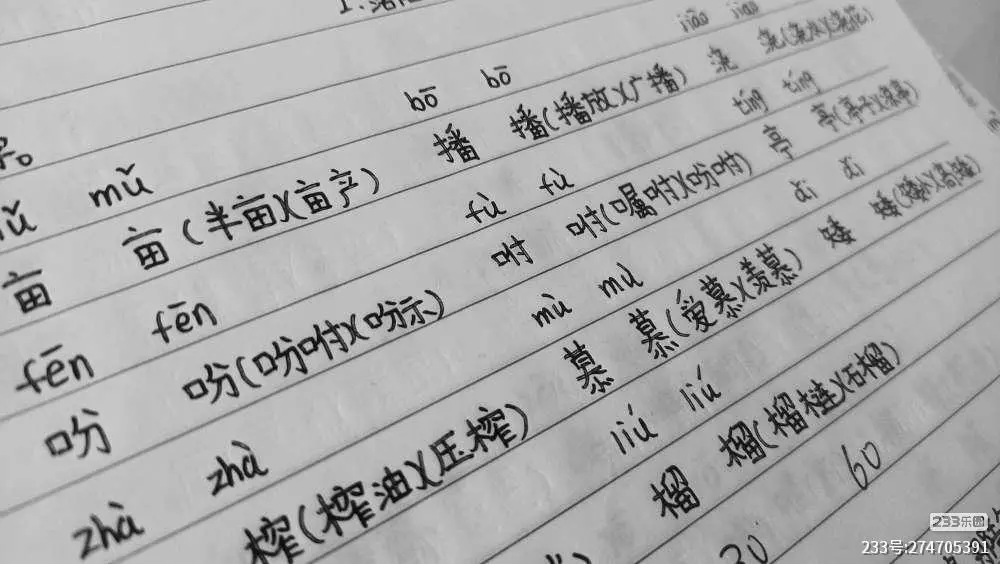 mǔ bō bō jiāo jiāo
亩 亩(半亩)(亩产) 播 播(播放)(广播) 浇 浇(浇水)(浇花)
fēn fēn fù fù tíng tíng
吩 吩(吩咐)(吩示) 咐 咐(嘱咐)(吩咐) 亭 亭(亭子)(凉亭)
zhà zhà mù mù ǎi ǎi
榨(榨油)(压榨) 慕 慕(爱慕)(羡慕) 矮 矮(矮小)(高矮)
liú liú
榴 榴(榴梿)(石榴)
30 60
233乐园
233号:274705391